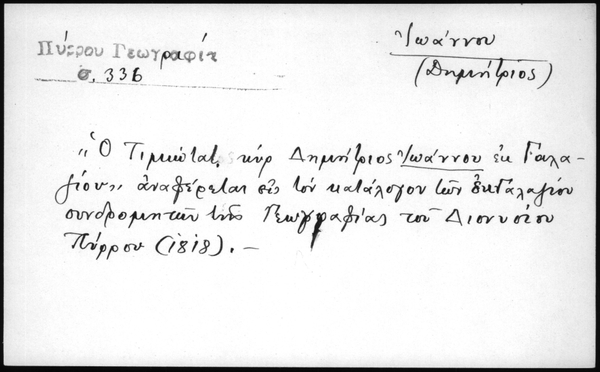 Πύρρου Γεωγραφία
σ. 336
Ἰωάννου
(Δημήτριος)
"Ὁ Τιμιώτατος κύρ Δημήτριος Ἰωάννου ἐκ Γαλα-
ζίου" ἀναφέρεται εἰς τὸν κατάλογον τῶν ἐκ Γαλαζίου
συνδρομητῶν τῆς Γεωγραφίας τοῦ Διονυσίου
Πύρρου (1818). –